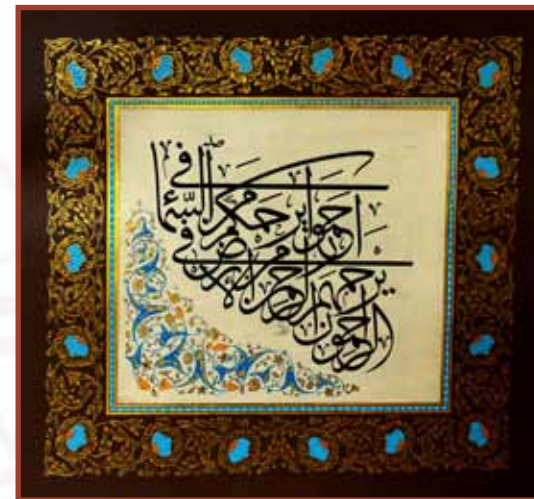 الراحمون
يرحمهم الرحمن
ارحموا من في الأرض
يرحمكم من في السّماء